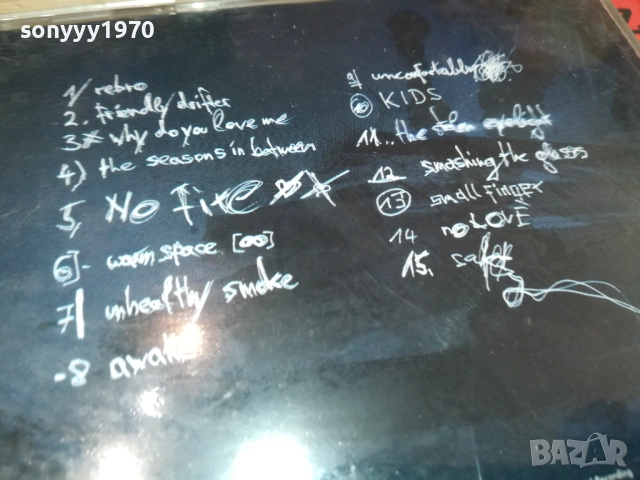 sonyyy1970
1/ retro
2. friendly drifter
3 why do you love me
4) the seasons in between
5, No Fire
6]- warm space [∞]
7| unhealthy smoke
-8 awake
9/ uncomfortably
10 KIDS
11.. the
12 smashing the glasses
13 small finger
14 no LOVE
15.
BAZAR